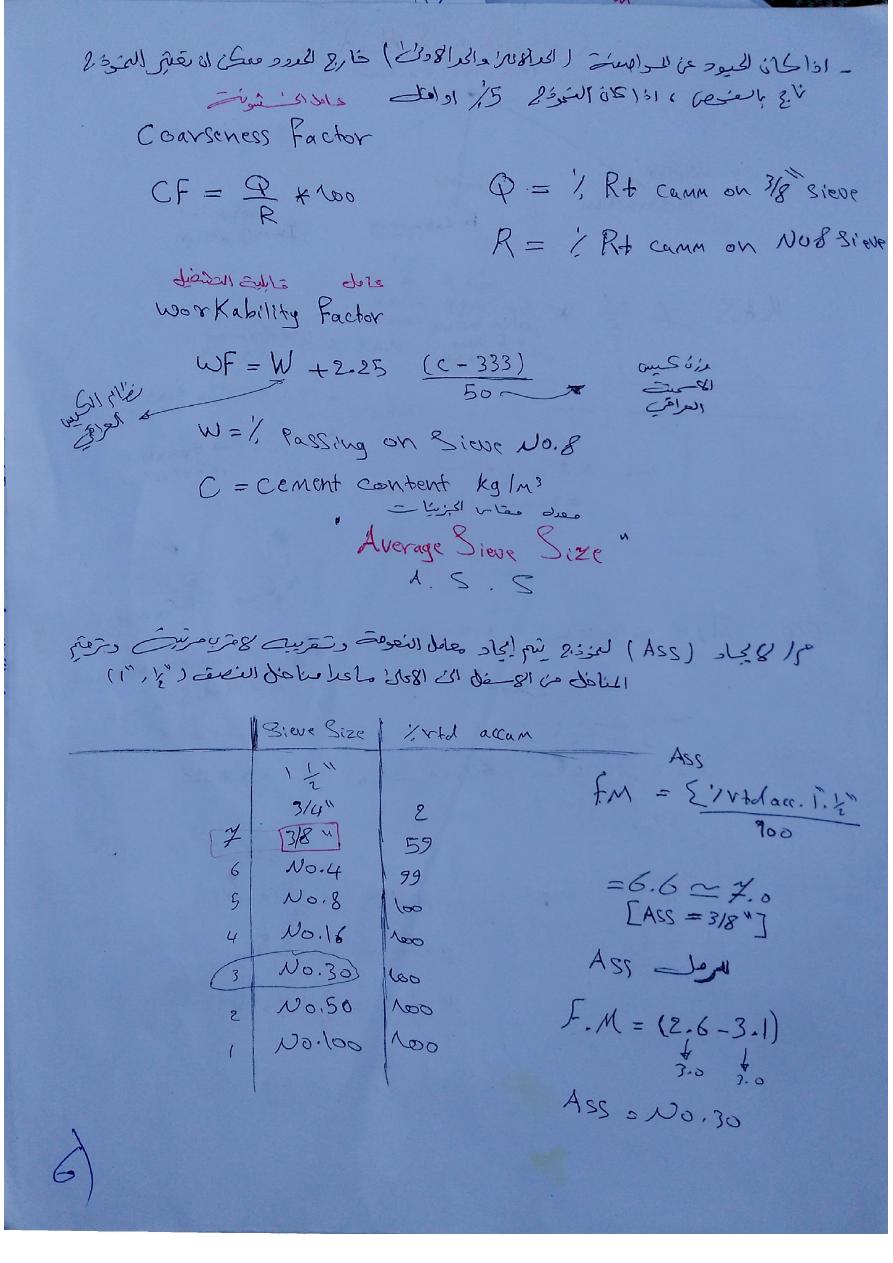 - اذا كان الحيود عن المواصفة (الحد الادنى والحد الاعلى) خارج الحدود ممكن ان نعتبر النموذج
ناجح بالفحص ، اذا كان النموذج 5% او اقل
عامل الخشونة
Coarseness Factor
CF = Q/R * 100
Q = % Rt camm on 3/8" sieve
R = % Rt camm on No8 Sieve
عامل قابلية التشغيل
Workability Factor
WF = W + 2.25 (C - 333)/50
وزن كيس
الاسمنت
العراقي
نظام الكيس
العراقي
W = % Passing on Sieve No.8
C = cement content kg/m³
معدل مقاس الجزيئات
" Average Sieve Size "
A. S. S
م/ لايجاد (Ass) لنموذج يتم إيجاد معامل النعومة وتقريبه لاقرب مرتبة وترقيم
المناخل من الاسفل الى الاعلى ماعدا مناخل النصف (1/2", 1")
Sieve Size %rtd accum
1 1/2"
3/4" 2
7 3/8" 59
6 No.4 99
5 No.8 100
4 No.16 100
3 No.30 100
2 No.50 100
1 No.100 100
Ass
FM = Σ%rtd acc. 1". 1/2"/100
= 6.6 ≃ 7.0
[Ass = 3/8"]
Ass للرمل
F.M = (2.6 - 3.1)
3.0 3.0
Ass = No.30